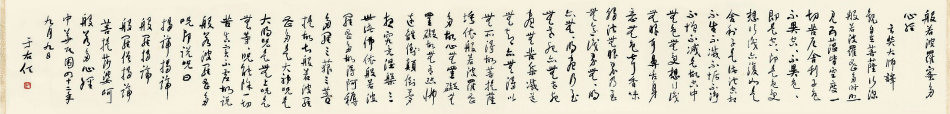 般若波羅蜜多
心經
玄奘大師譯
觀自在菩薩行深
般若波羅蜜多時照
見五蘊皆空度一
切苦厄舍利子色
不異空空不異色色
即是空空即是色受
想行識亦復如是
舍利子是諸法空相
不生不滅不垢不淨
不增不減是故空中
無色無受想行識
無眼耳鼻舌身
意無色聲香味
觸法無眼界乃
至無意識界無無明
亦無無明盡乃至
無老死亦無老死
盡無苦集滅道
無智亦無得以
無所得故菩提薩
埵依般若波羅蜜
多故心無罣礙無
罣礙故無有恐怖
遠離顛倒夢想
究竟涅槃三
世諸佛依般若波
羅蜜多故得阿耨
多羅三藐三菩
提故知般若波羅
蜜多是大神咒是
大明咒是無上咒是
無等等咒能除一切
苦真實不虛故說
般若波羅蜜多
咒即說咒曰
揭諦揭諦
般羅揭諦
般羅僧揭諦
菩提薩婆訶
般若多心經
九月九日
于右任